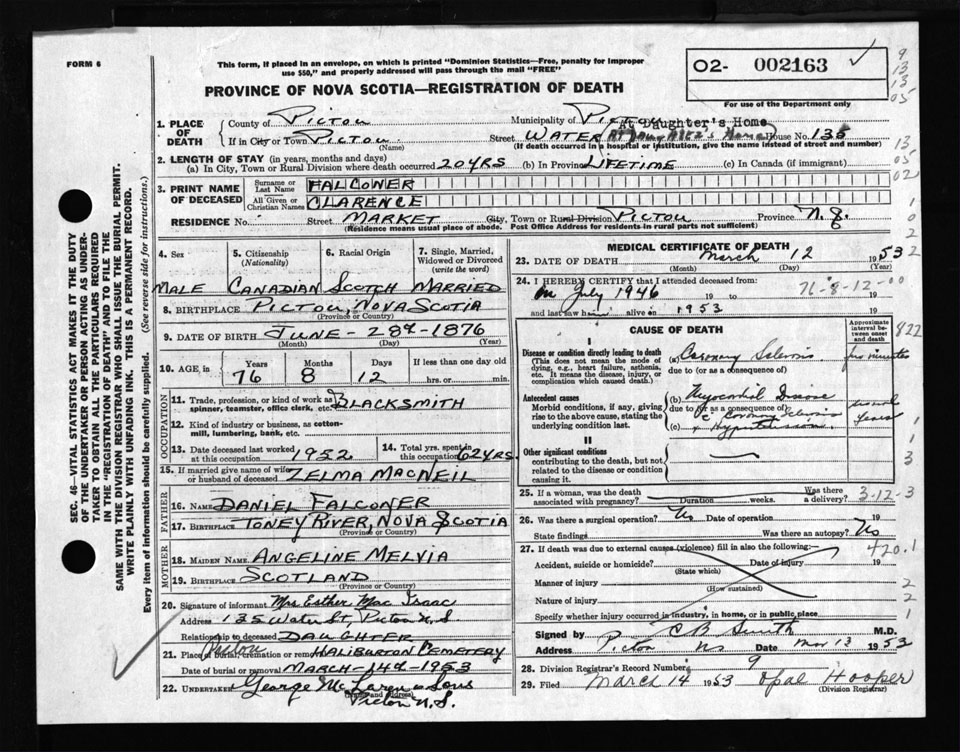 FORM 6
This form, if placed in an envelope, on which is printed "Dominion Statistics—Free, penalty for improper
use $50," and properly addressed will pass through the mail "FREE"
PROVINCE OF NOVA SCOTIA—REGISTRATION OF DEATH
O2- 002163
For use of the Department only
9
13
13
05
13
05
02
1. PLACE OF DEATH
County of Pictou Municipality of Pictou
At Daughter's Home
If in City or Town Pictou Street WATER At Daughter's Home House No. 135
(Name) (If death occurred in a hospital or institution, give the name instead of street and number)
2. LENGTH OF STAY (in years, months and days)
(a) In City, Town or Rural Division where death occurred 20 YRS (b) In Province LIFETIME (c) In Canada (if immigrant)
3. PRINT NAME OF DECEASED
Surname or Last Name FALCONER
All Given or Christian Names CLARENCE
RESIDENCE No. Street MARKET City, Town or Rural Division PICTOU Province N.S.
(Residence means usual place of abode. Post Office Address for residents in rural parts not sufficient)
4. Sex MALE
5. Citizenship (Nationality) CANADIAN
6. Racial Origin SCOTCH
7. Single, Married, Widowed or Divorced (write the word) MARRIED
8. BIRTHPLACE PICTOU, NOVA SCOTIA
(Province or Country)
9. DATE OF BIRTH JUNE - 28th - 1876
(Month) (Day) (Year)
10. AGE, in Years 76 Months 8 Days 12 If less than one day old hrs. or min.
OCCUPATION
11. Trade, profession, or kind of work as spinner, teamster, office clerk, etc. BLACKSMITH
12. Kind of industry or business, as cotton-mill, lumbering, bank, etc.
13. Date deceased last worked at this occupation 1952
14. Total yrs. spent in this occupation 62 YRS.
15. If married give name of wife or husband of deceased ZELMA MACNEIL
FATHER
16. NAME DANIEL FALCONER
17. BIRTHPLACE TONEY RIVER, NOVA SCOTIA
(Province or Country)
MOTHER
18. MAIDEN NAME ANGELINE MELVIA
19. BIRTHPLACE SCOTLAND
(Province or Country)
20. Signature of informant Mrs Esther Mac Isaac
Address 135 Water St, Pictou N.S.
Relationship to deceased DAUGHTER
21. Place of burial, cremation or removal Pictou HALIBURTON CEMETERY
Date of burial or removal MARCH - 14th - 1953
22. UNDERTAKER George McLaren & Sons
(Name and address)
Pictou N.S.
MEDICAL CERTIFICATE OF DEATH
23. DATE OF DEATH March 12 1953
(Month) (Day) (Year)
24. I HEREBY CERTIFY that I attended deceased from:
on July 1946 19 to 19
and last saw him alive on 1953 19
76-8-12-00
CAUSE OF DEATH
Approximate interval between onset and death
822
I
Disease or condition directly leading to death
(This does not mean the mode of dying, e.g., heart failure, asthenia, etc. It means the disease, injury, or complication which caused death.)
(a) Coronary Sclerosis
due to (or as a consequence of)
minutes
Antecedent causes
Morbid conditions, if any, giving rise to the above cause, stating the underlying condition last.
(b) Myocardial Disease
due to (or as a consequence of)
c Coronary Sclerosis
(c) + Hypertension
several years
II
Other significant conditions
contributing to the death, but not related to the disease or condition causing it.
25. If a woman, was the death associated with pregnancy? Duration weeks. Was there a delivery?
3-12-3
26. Was there a surgical operation? No Date of operation 19
State findings Was there an autopsy? No
27. If death was due to external causes (violence) fill in also the following:—
420.1
Accident, suicide or homicide? Date of injury 19
(State which)
Manner of injury 2
(How sustained)
Nature of injury 2
Specify whether injury occurred in industry, in home, or in public place 1
Signed by C B Smith M.D.
Address Pictou NS Date Mar 13 1953
28. Division Registrar's Record Number 9
29. Filed March 14 1953 Opal Hooper
(Division Registrar)
SEC. 46—VITAL STATISTICS ACT MAKES IT THE DUTY
OF THE UNDERTAKER OR PERSON ACTING AS UNDER-
TAKER TO OBTAIN ALL THE PARTICULARS REQUIRED
IN THE "REGISTRATION OF DEATH" AND TO FILE THE
SAME WITH THE DIVISION REGISTRAR WHO SHALL ISSUE THE BURIAL PERMIT.
WRITE PLAINLY WITH UNFADING INK. THIS IS A PERMANENT RECORD.
Every item of information should be carefully supplied. (See reverse side for instructions.)